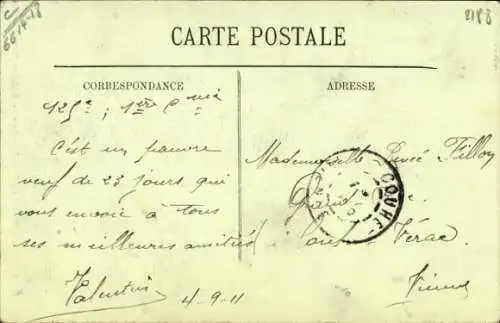 C
6614-18
2183
CARTE POSTALE
CORRESPONDANCE
ADRESSE
125e ; 1ère Cnie
C'est un pauvre
veuf de 23 jours qui
vous envoie à tous
ses meilleures amitiés
Valentin 4-9-11
Mademoiselle Renée Filloy
COUHÉ
Vérac
Vienne